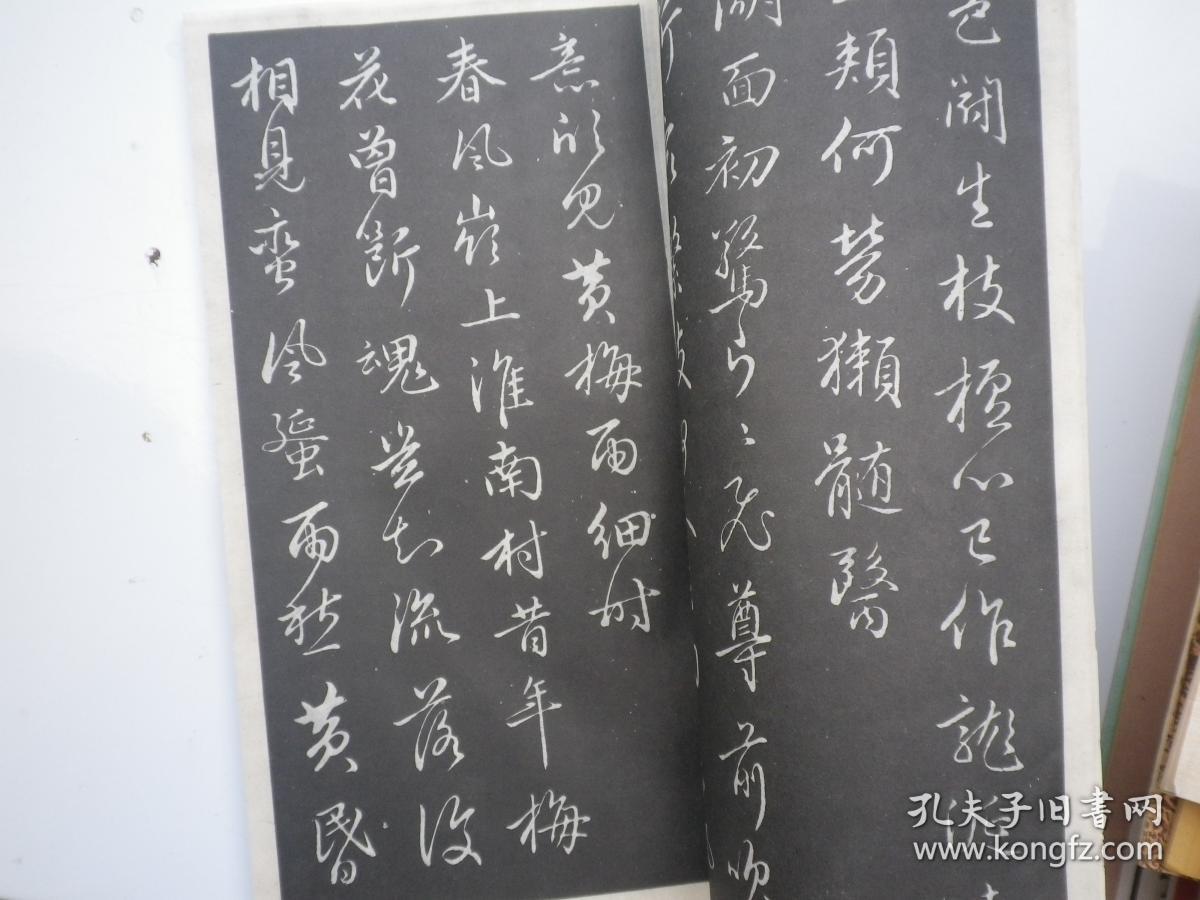 色鬭生枝檀心已作龍涎
頰何勞獺髓醫
湖面初驚片々飛尊前吹
意欲見黃梅雨細時
春風嶺上淮南村昔年梅
花曾斷魂豈知流落復
相見蠻風蜑雨愁黃昏
孔夫子旧书网
www.kongfz.com